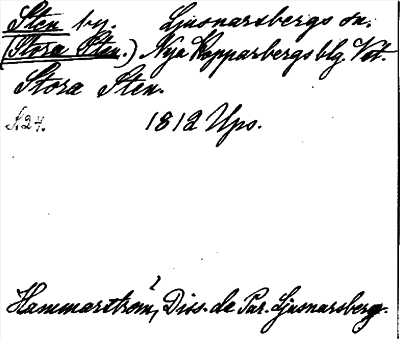 Sten by. Ljusnarsbergs sn.
(Stora Sten.) Nya Kopparbergs blg. Vst.
Stora Sten.
S.24. 1812 Ups.
Hammarström, Diss. de Par. Ljusnarsberg.